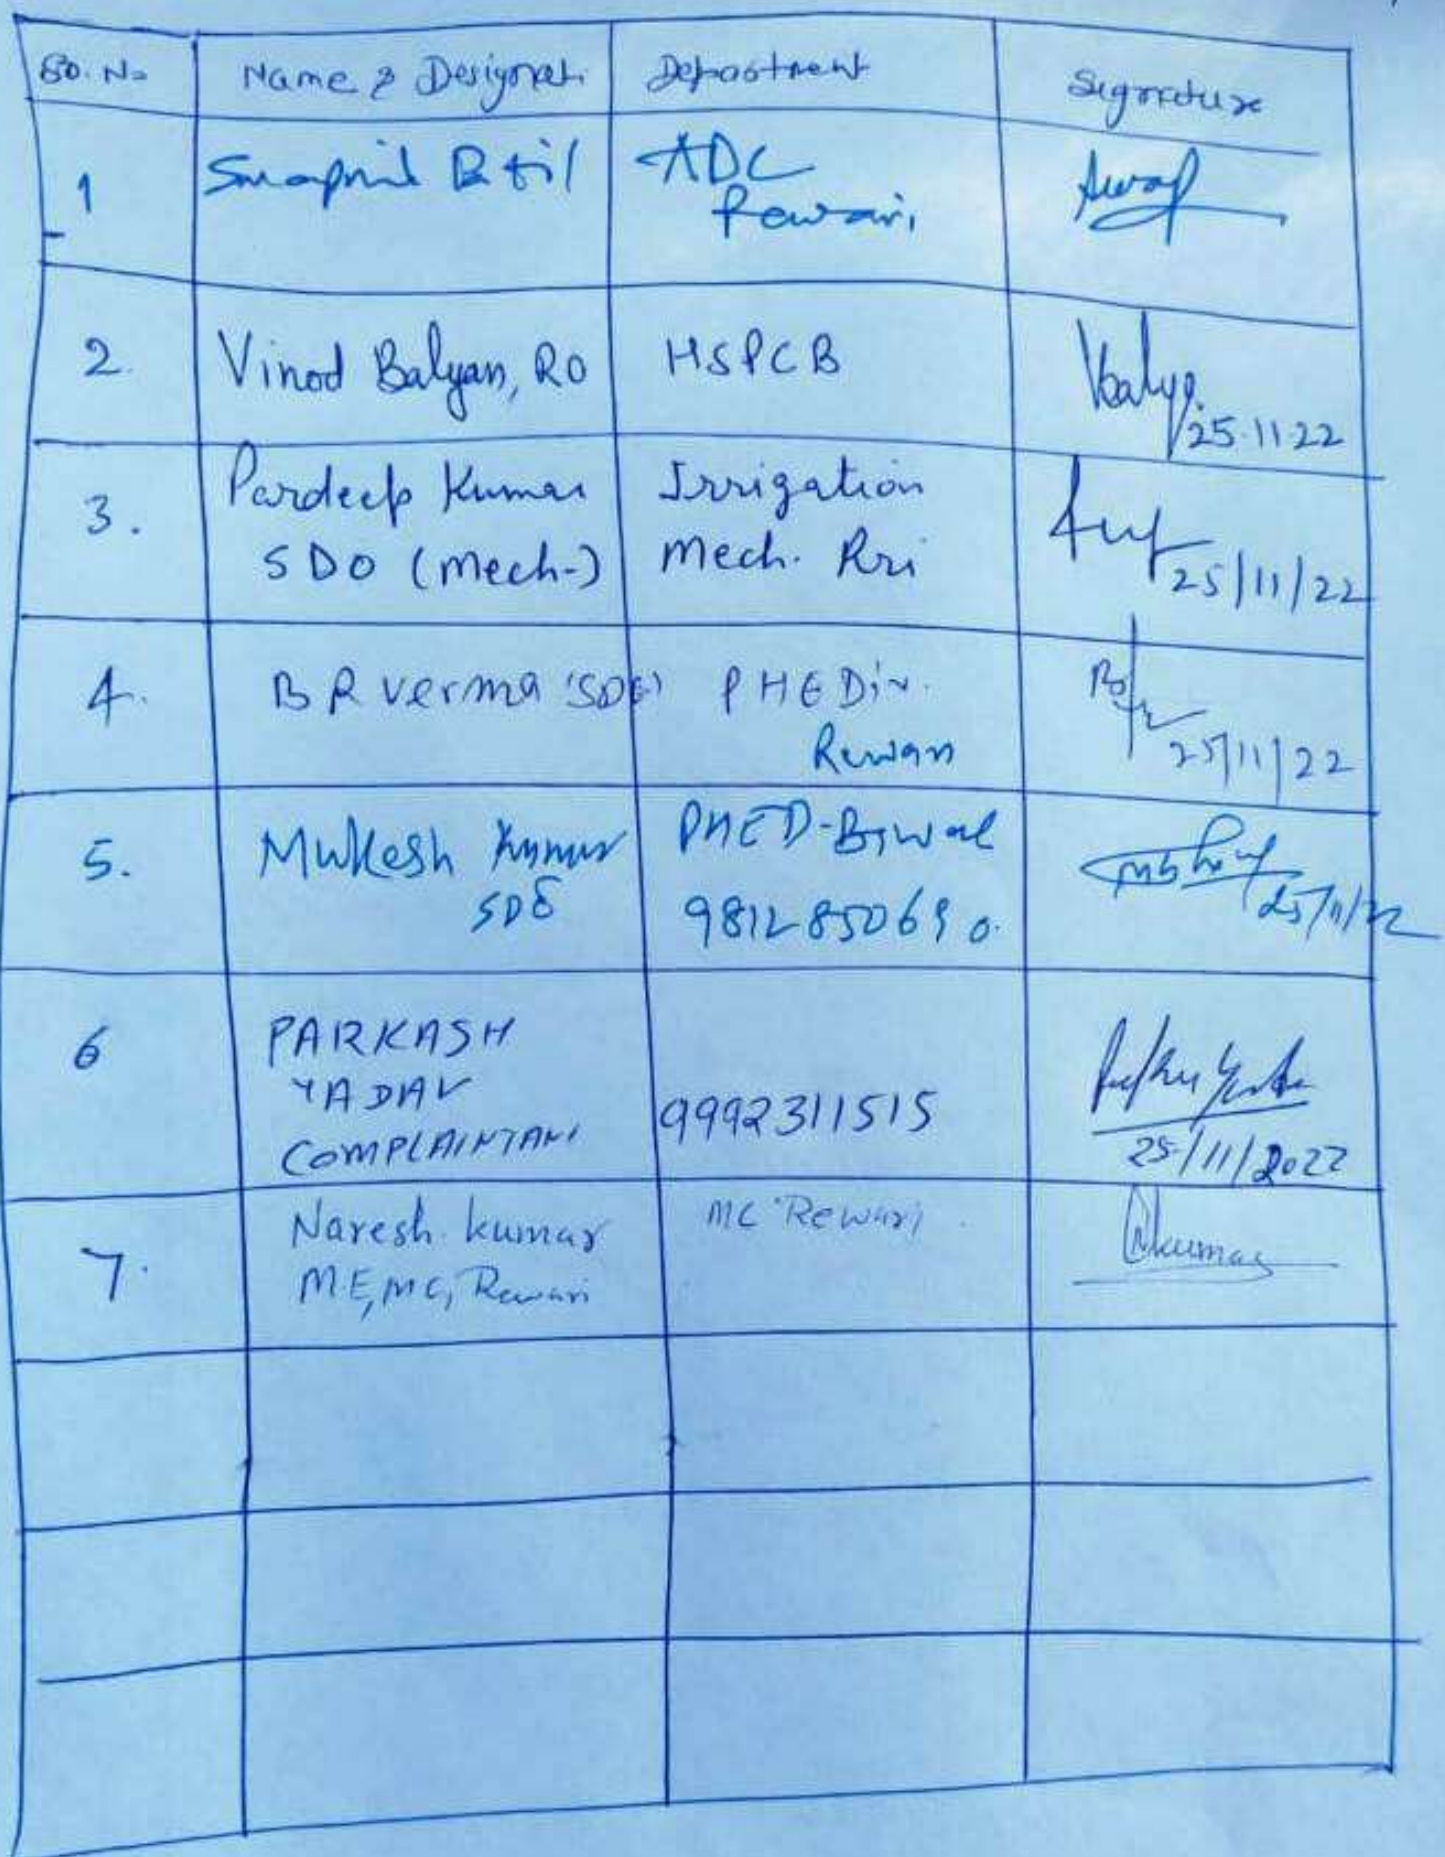 Sr. No Name & Designat. Department Signature
1 Swapnil Patil ADC
Rewari
2. Vinod Balyan, RO HSPCB
25.11.22
3. Pardeep Kumar Irrigation
SDO (Mech.) Mech. Rri
25/11/22
4. B R Verma (SDE) PHE Div.
Rewari
25/11/22
5. Mukesh Kumar PHED-Bawal
SDE
25/11/22
6 PARKASH
YADAV
COMPLAINTANT 9992311515
25/11/2022
7. Naresh kumar MC Rewari
ME, MC, Rewari Nkumar